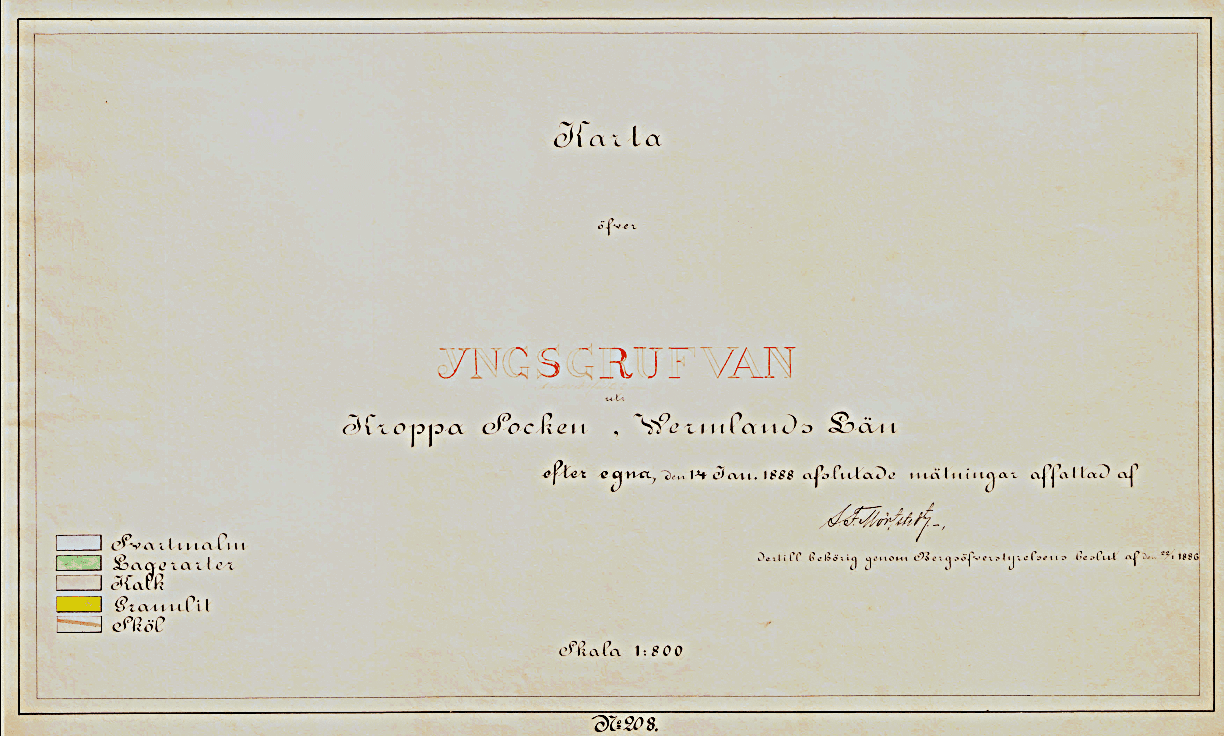 Karta
öfver
YNGSGRUFVAN
uti
Kroppa Socken , Wermlands Län
efter egna, den 14 Jan. 1888 afslutade mätningar affattad af
dertill behörig genom Bergsöfverstyrelsens beslut af den 22/1 1886
Svartmalm
Lagerarter
Kalk
Granulit
Sköl
Skala 1:800
No 208.